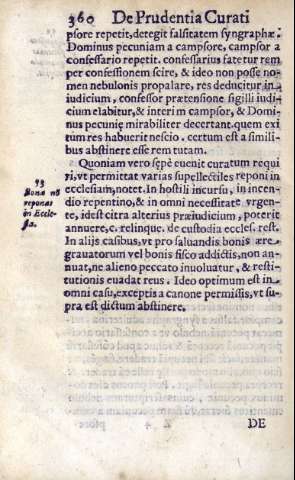 360 De Prudentia Curati
psore repetit, detegit falsitatem syngraphæ.
Dominus pecuniam a campsore, campsor a
confessario repetit. confessarius fatetur rem
per confessionem scire, & ideo non posse no-
men nebulonis propalare, res deducitur in
iudicium, confessor prætensione sigilli iudi-
cium elabitur, & interim campsor, & Domi-
nus pecunię mirabiliter decertant. quem exi
tum res habuerit nescio. certum est a simili-
bus abstinere esse rem tutam.
Quoniam vero sępè euenit curatum requi
ri, vt permittat varias supellectiles reponi in
ecclesiam, notet. In hostili incursu, in incen-
dio repentino, & in omni necessitate vrgen-
te, idest citra alterius præiudicium, poterit
annuere, c. relinque. de custodia eccles. rest.
In alijs casibus, vt pro saluandis bonis ære
grauatorum vel bonis fisco addictis, non an-
nuat, ne alieno peccato inuoluatur, & resti-
tutionis euadat reus. Ideo optimum est in
omni casu, exceptis a canone permissis, vt su-
pra est dictum abstinere.
93
Bona nō
reponas
in Eccle-
sia.
DE